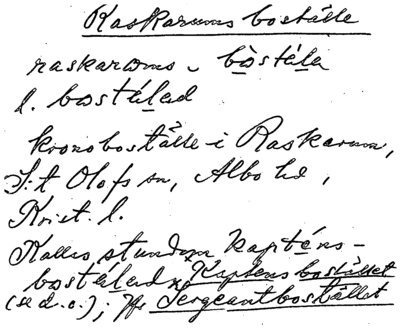 Raskarums boställe
raskaroms ᴗ bòstéla
l. bostélad
kronoboställe i Raskarum,
S:t Olofs sn, Albo hd,
Krist. l.
Kallas stundom kapténs-
bostélad, Kaptensbostället
(se d. o.); jfr Sergeantbostället